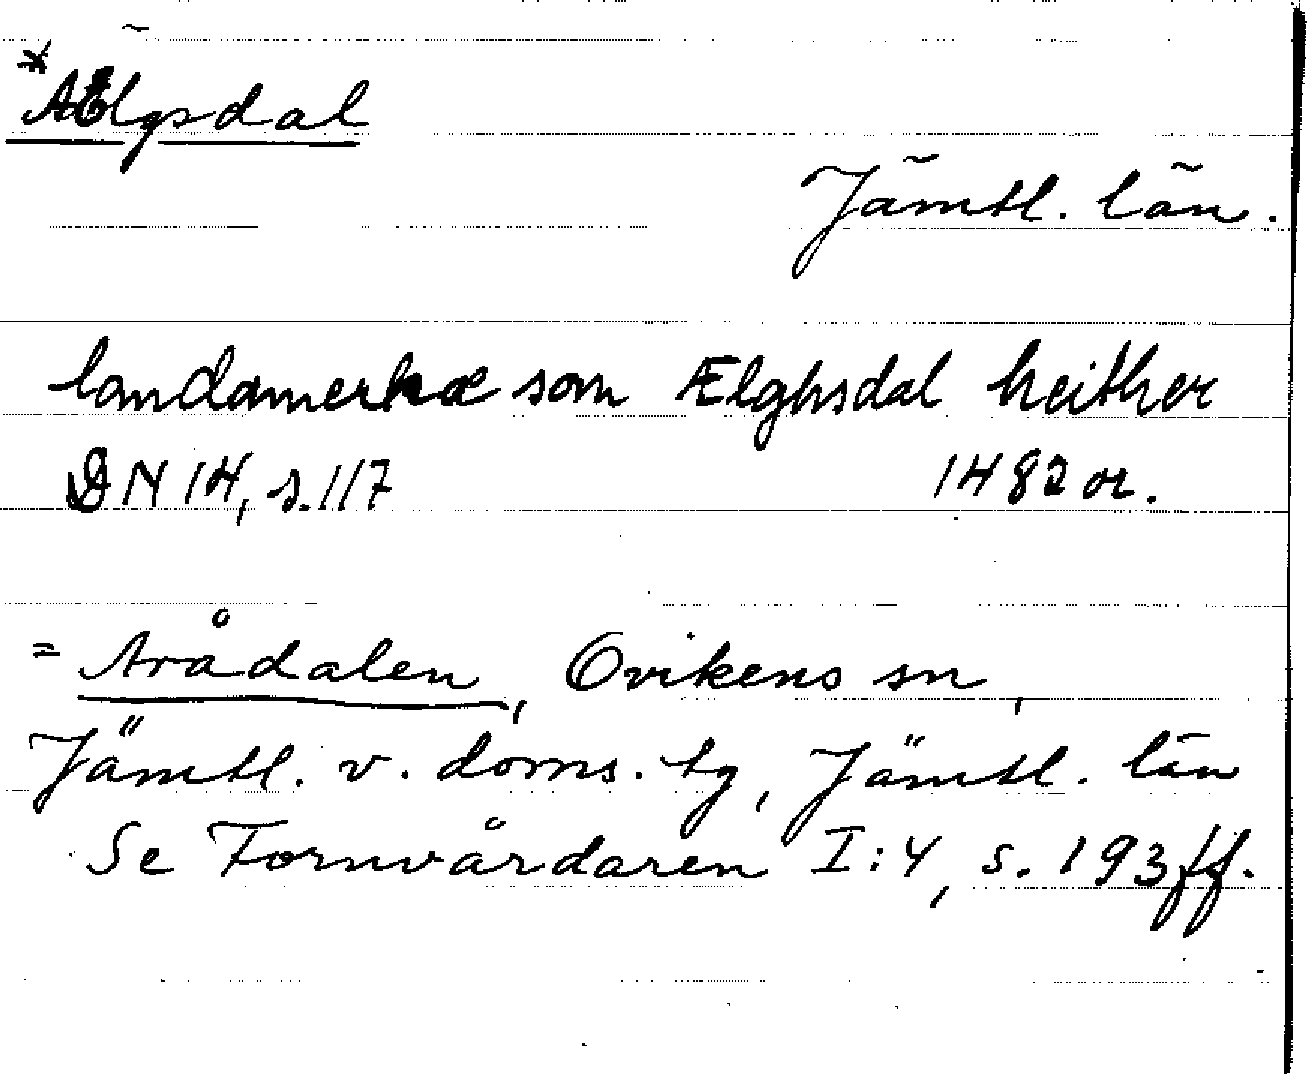 *Ælgsdal
Jämtl. län.
landamerkæ som Ælghsdal heither
DN 14, s. 117 1482 or.
= Arådalen, Ovikens sn,
Jämtl. v. doms. tg, Jämtl. län
Se Fornvårdaren I:4, s. 193 ff.